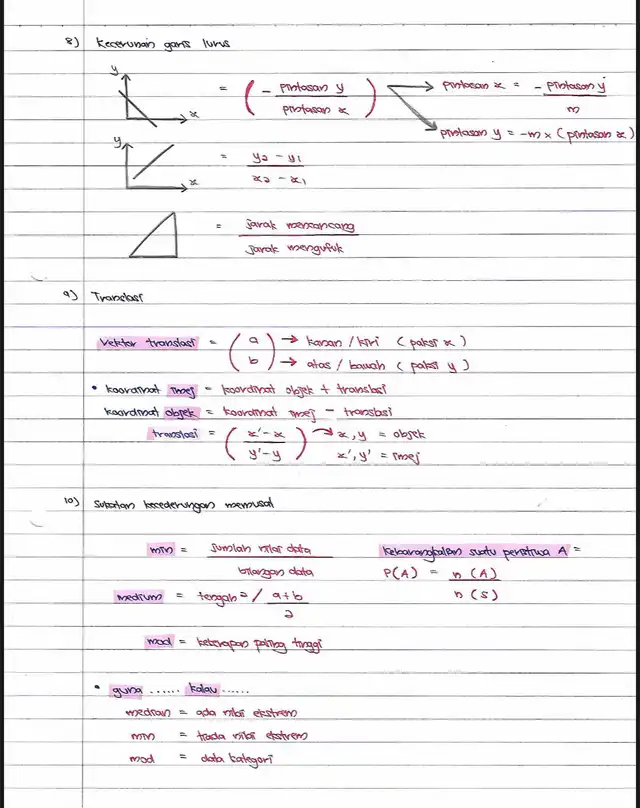 8) Kecerunan garis lurus
y
x
= ( - pintasan y / pintasan x ) → pintasan x = - pintasan y / m
→ pintasan y = -m × (pintasan x)
y
x
= y2 - y1 / x2 - x1
= jarak mencancang / jarak mengufuk
9) Translasi
Vektor translasi = ( a ) → kanan / kiri ( paksi x )
( b ) → atas / bawah ( paksi y )
• koordinat imej = koordinat objek + translasi
koordinat objek = koordinat imej - translasi
translasi = ( x' - x / y' - y ) → x, y = objek
x', y' = imej
10) Sukatan kecederungan memusat
min = jumlah nilai data / bilangan data
medium = tengah2 / a + b / 2
mod = kekerapan paling tinggi
Kebarangkalian suatu peristiwa A =
P(A) = n(A) / n(S)
• guna ...... kalau ......
median = ada nilai ekstrem
min = tiada nilai ekstrem
mod = data kategori